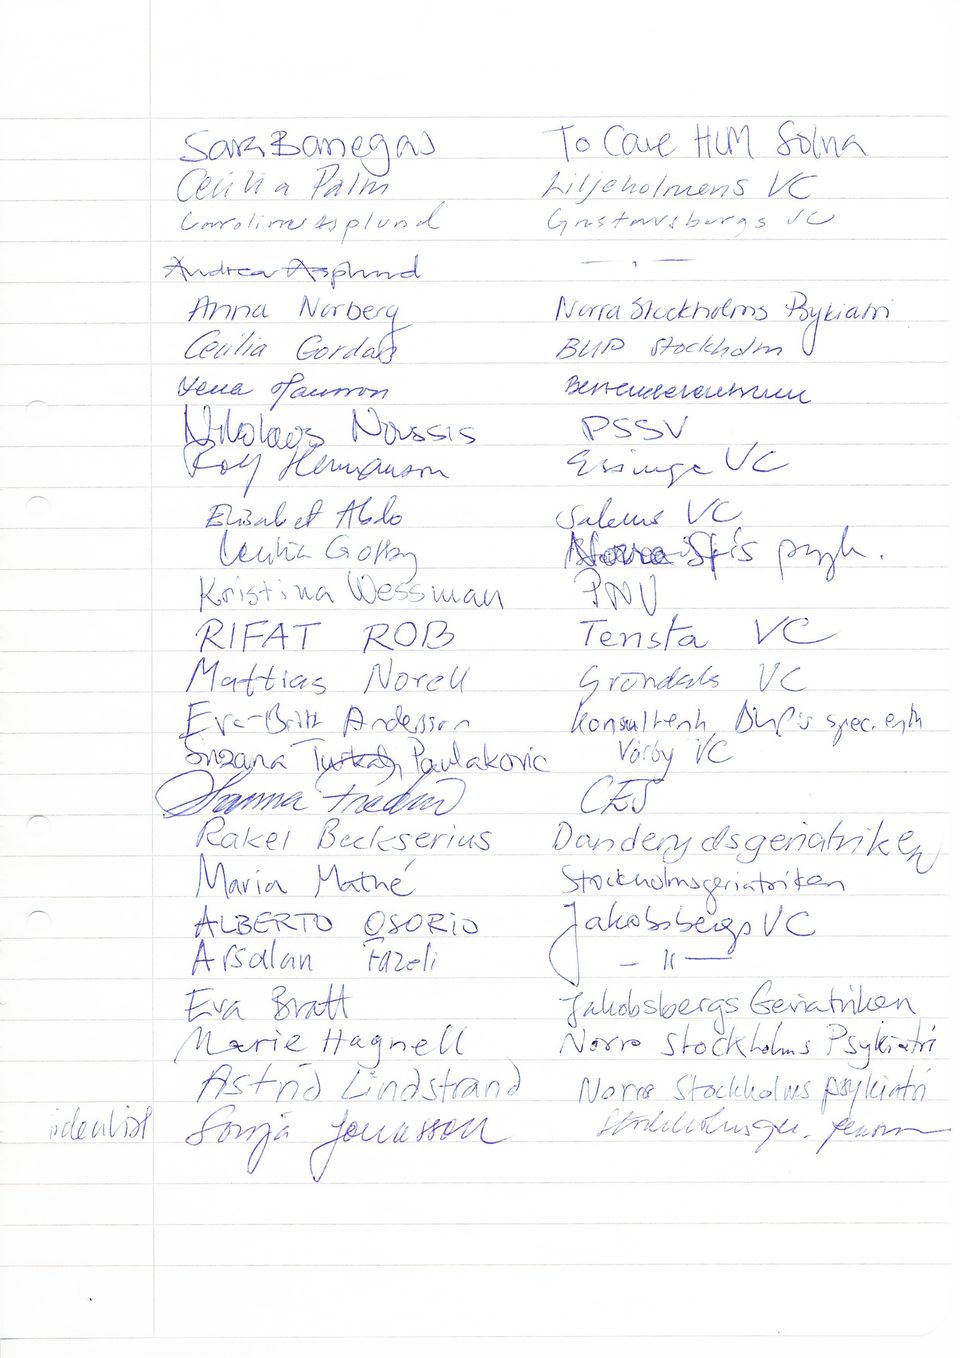 Sara Banegas To Care HLM Solna
Cecilia Palm Liljeholmens VC
Caroline Asplund Gustavsbergs VC
Andrea Asplund — " —
Anna Norberg Norra Stockholms Psykiatri
Cecilia Gordan BUP Stockholm
Lena Hansson Beroendecentrum
Nikolaos Noussis PSSV
Rolf Hermanson Essinge VC
Elisabet Abdo Salems VC
Cecilia Golby Norra psyk.
Kristina Wessman PNV
RIFAT ROB Tensta VC
Mattias Norell Gröndals VC
Eva-Britt Andersson Konsultenh, BUP's spec.enh
Suzana Pavlakovic Vårby VC
Hanna CES
Rakel Beckserius Danderydsgeriatriken
Maria Mathé Stockholmsgeriatriken
ALBERTO OSORIO Jakobsbergs VC
Arsalan Fazeli — 11 —
Eva Bratt Jakobsbergs Geriatriken
Marie Hagnell Norra Stockholms Psykiatri
Astrid Lindstrand Norra Stockholms psykiatri
Sonja Jonasson